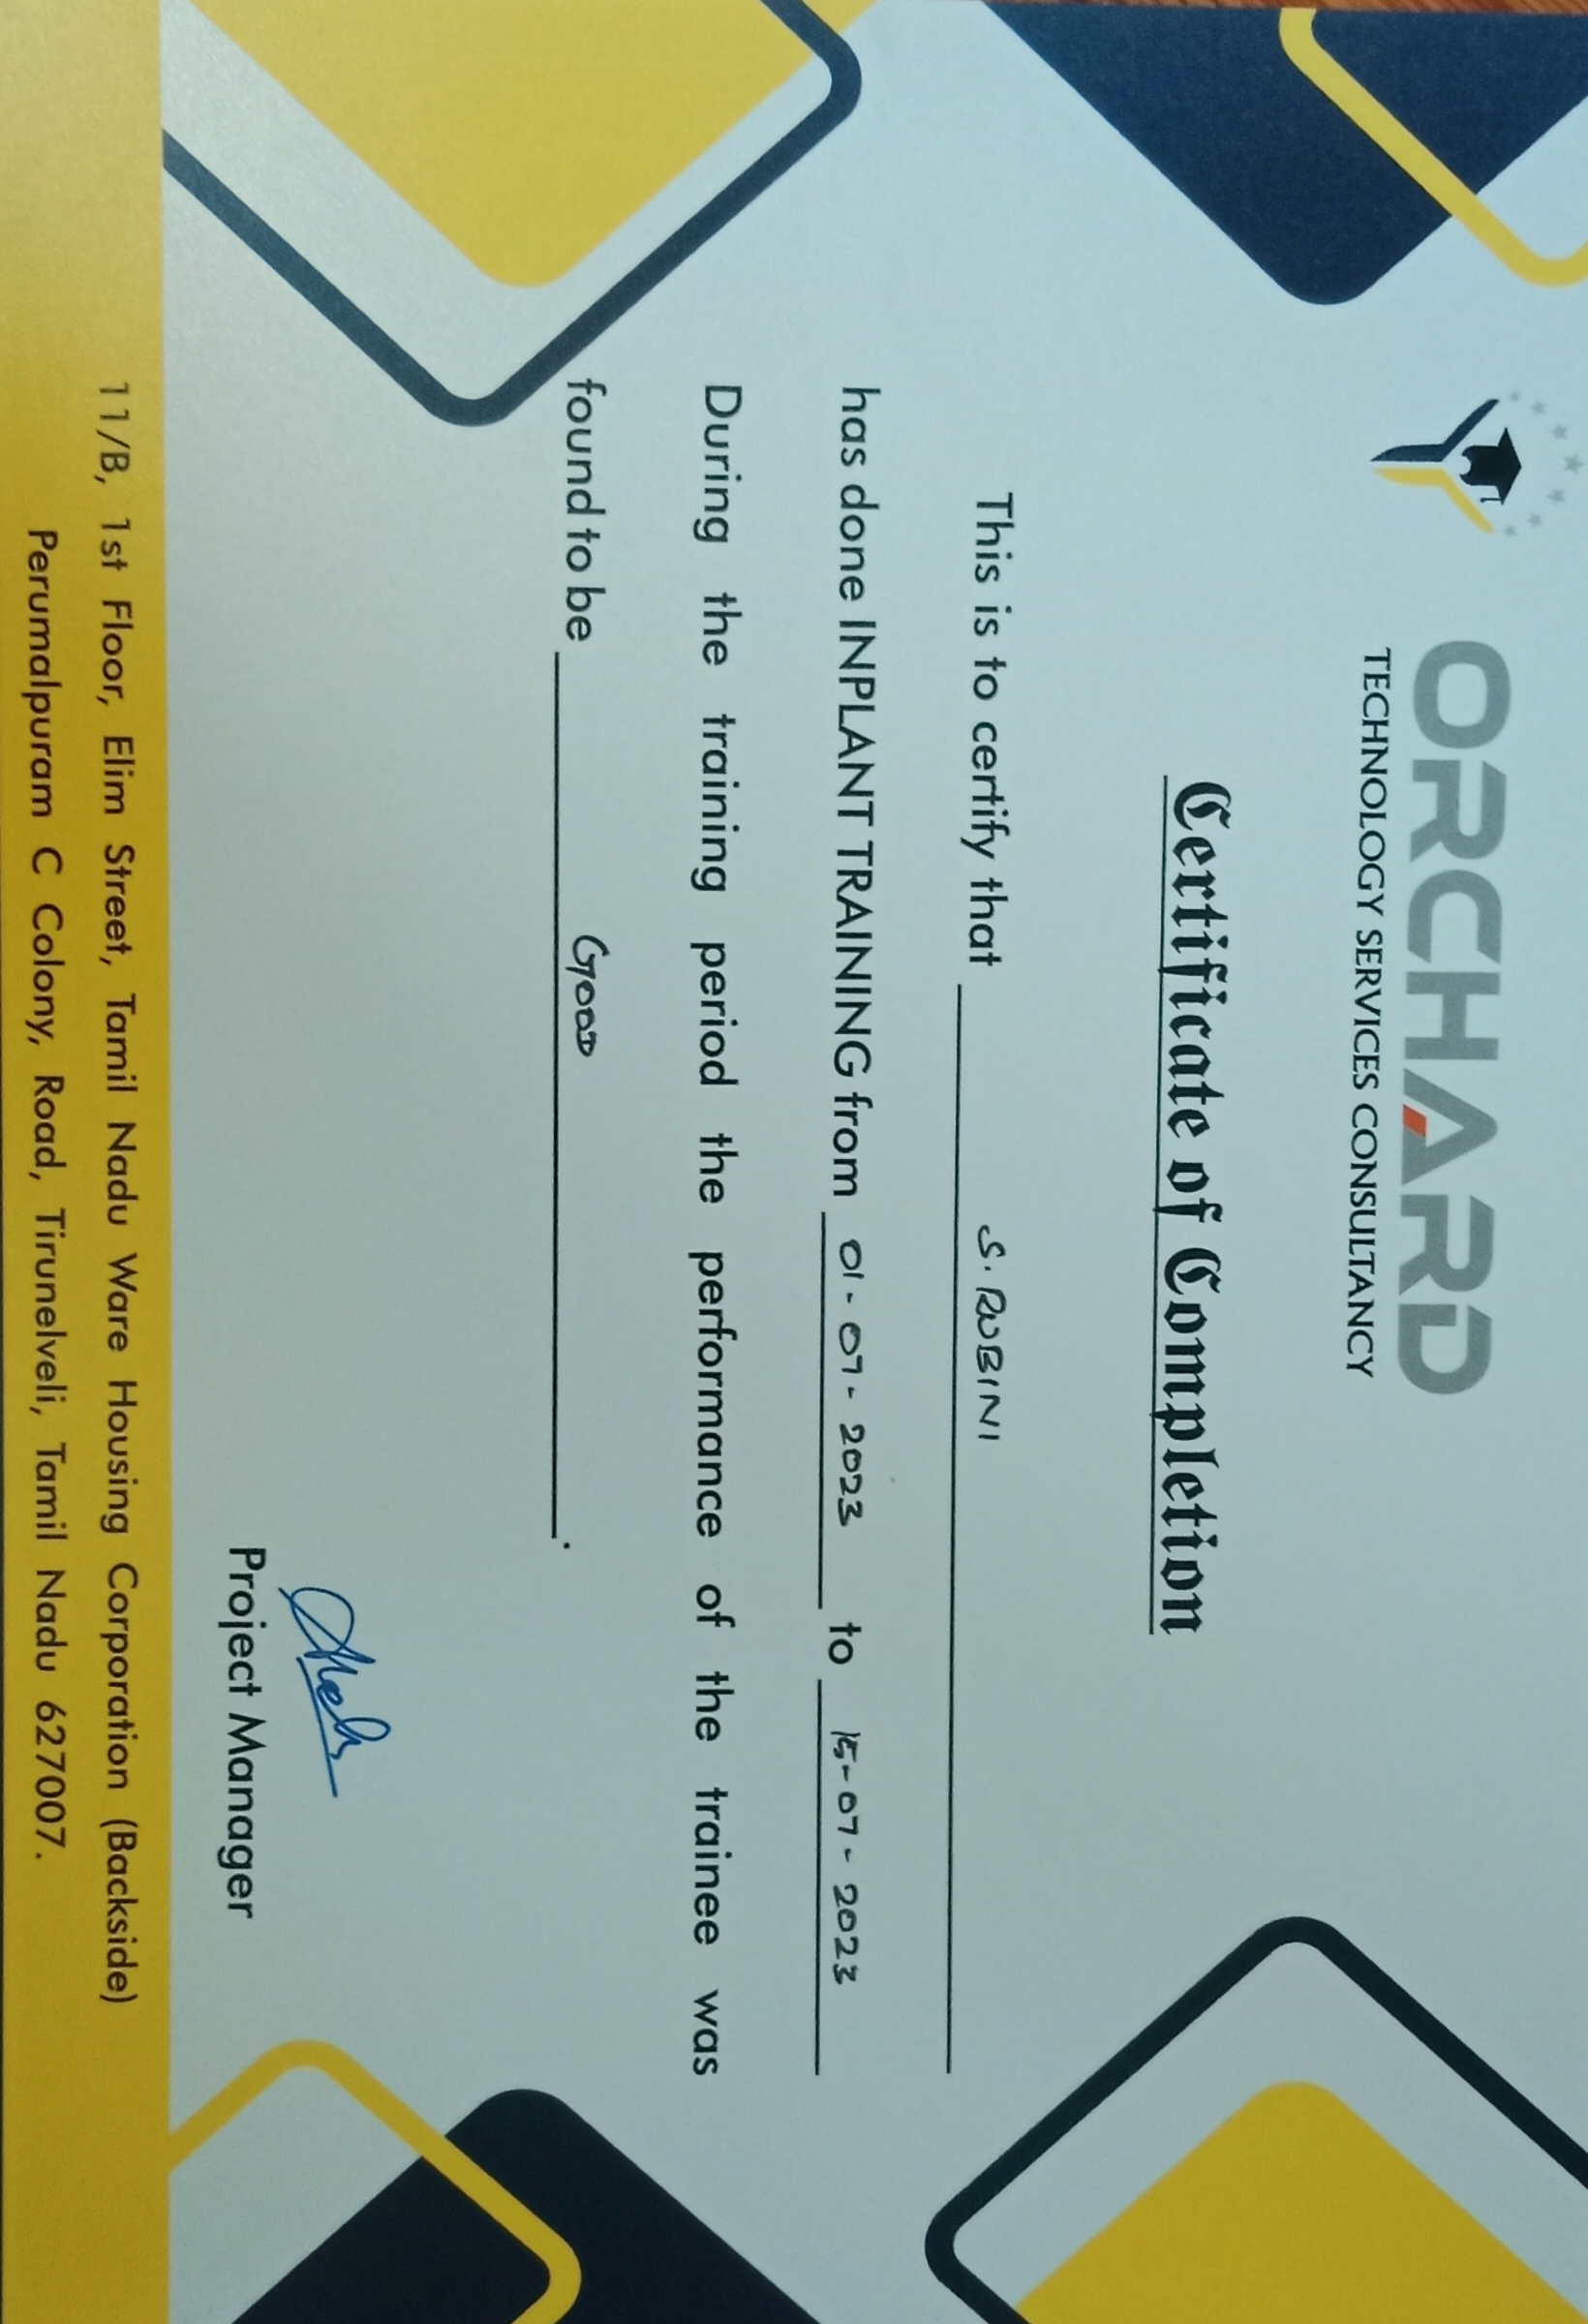 ORCHARD
TECHNOLOGY SERVICES CONSULTANCY
Certificate of Completion
This is to certify that S. RUBINI
has done INPLANT TRAINING from 01-07-2023 to 15-07-2023
During the training period the performance of the trainee was
found to be GOOD.
Project Manager
11/B, 1st Floor, Elim Street, Tamil Nadu Ware Housing Corporation (Backside)
Perumalpuram C Colony, Road, Tirunelveli, Tamil Nadu 627007.